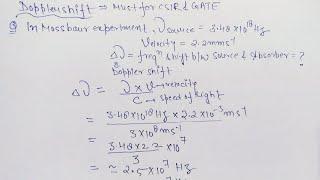 Doppler shift ⇒ Must for CSIR & GATE
Q In Mossbaur experiment, ν source = 3.48 × 10¹⁸ Hz
Velocity = 2.2 mms⁻¹
Δν = freqⁿ shift b/w source & absorber = ?
Doppler shift
Δν = ν × v → velocity
C → Speed of light
= 3.48 × 10¹⁸ Hz × 2.2 × 10⁻³ ms⁻¹
3 × 10⁸ ms⁻¹
= 3.48 × 2.2 × 10⁷
3
= ≈ 2.5 × 10⁷ Hz